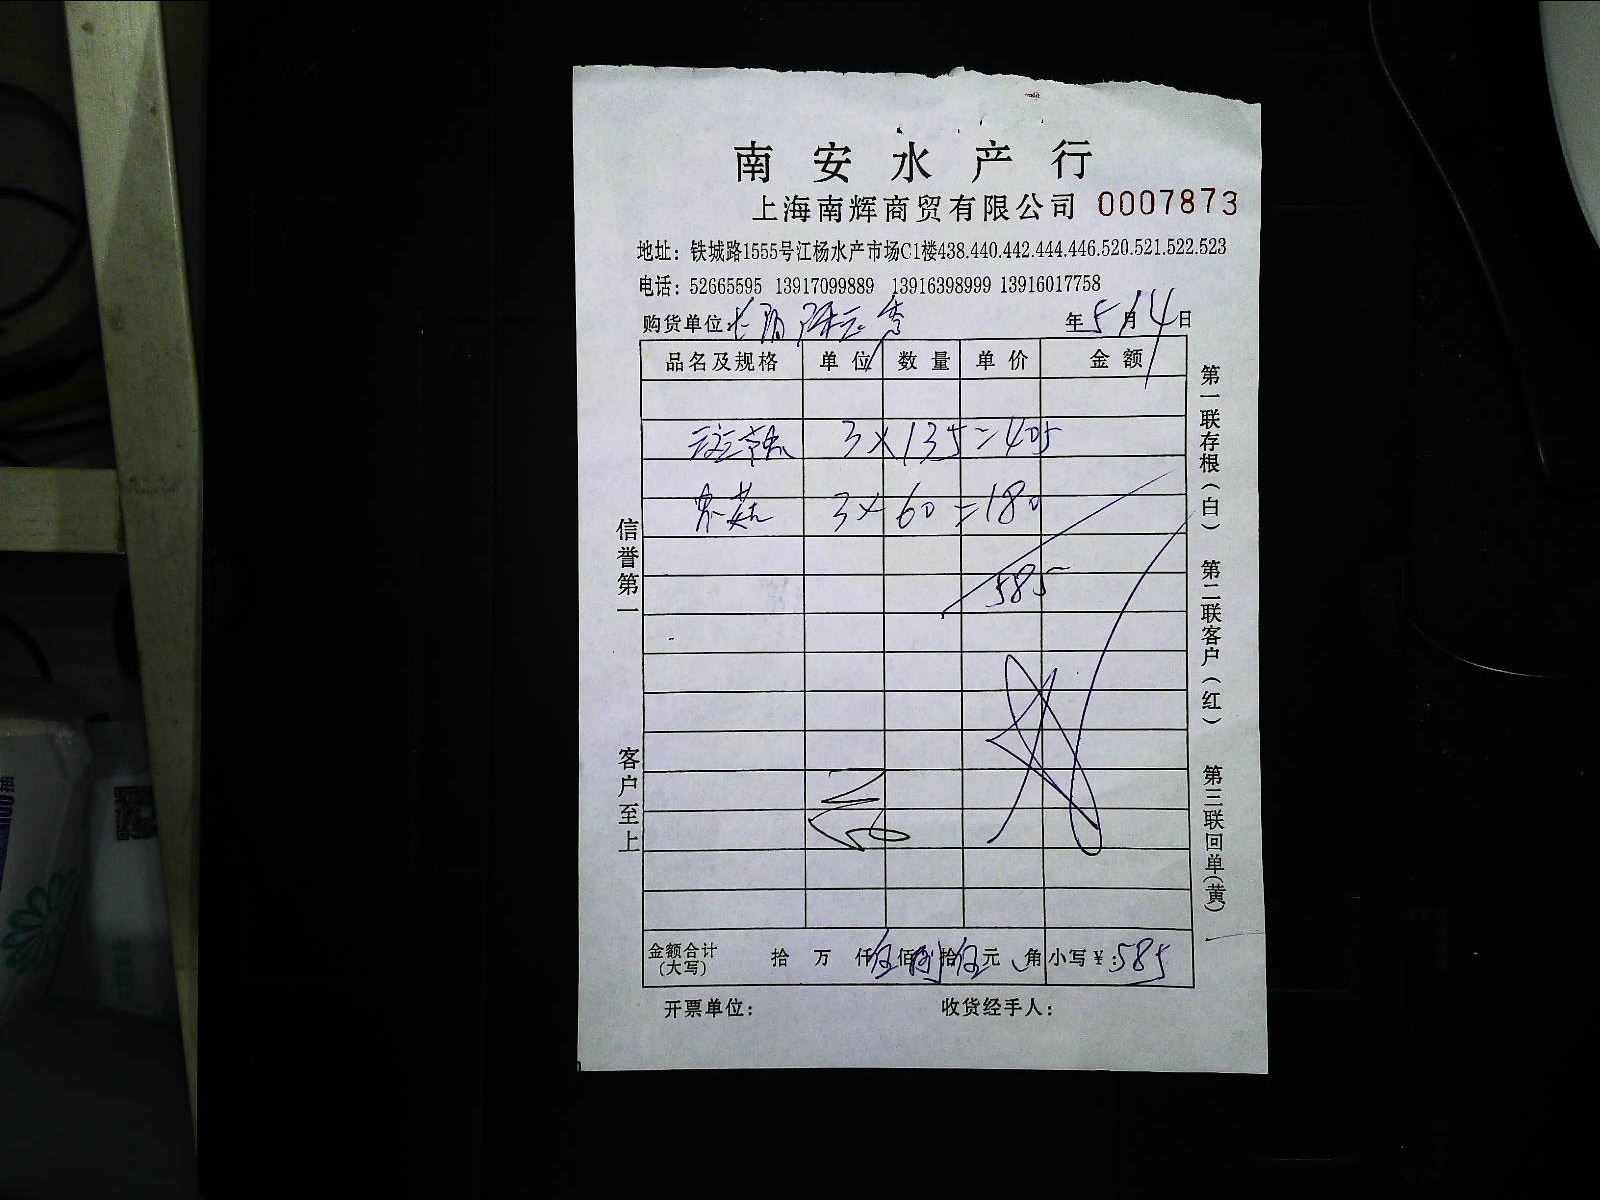 南安水产行
上海南辉商贸有限公司 0007873
地址：铁城路1555号江杨水产市场C1楼438.440.442.444.446.520.521.522.523
电话：52665595 13917099889 13916398999 13916017758
购货单位：
年5月14日
品名及规格 单位 数量 单价 金额
3×135=405
3×60=180
585
金额合计（大写） 拾 万 仟伍佰捌拾伍元 角 小写￥：585
开票单位： 收货经手人：
信誉第一 客户至上
第一联存根（白） 第二联客户（红） 第三联回单（黄）
100抽